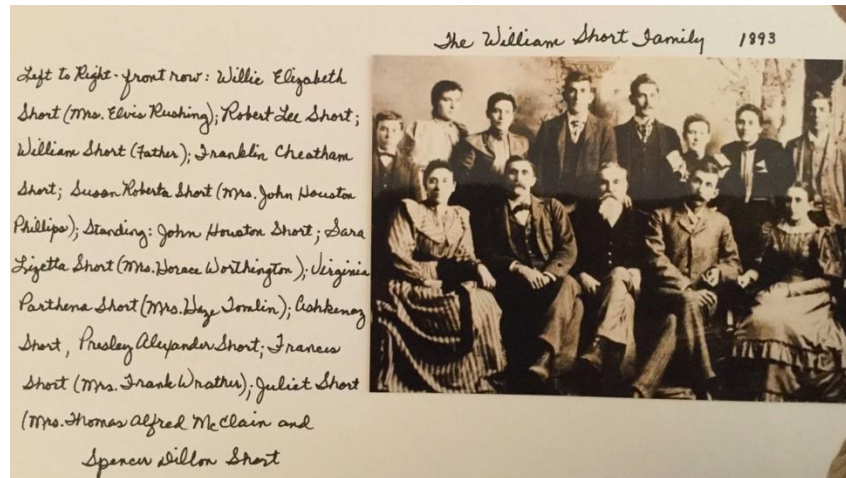 The William Short Family 1893
Left to Right - front row: Willie Elizabeth
Short (Mrs. Elvis Rushing); Robert Lee Short;
William Short (Father); Franklin Cheatham
Short; Susan Roberta Short (Mrs. John Houston
Phillips); Standing: John Houston Short; Sara
Lizetta Short (Mrs. Horace Worthington); Virginia
Parthena Short (Mrs. Haze Tomlin); Ashkenaz
Short, Presley Alexander Short; Frances
Short (Mrs. Frank Wrather); Juliet Short
(Mrs. Thomas Alfred McClain and
Spencer Dillon Short